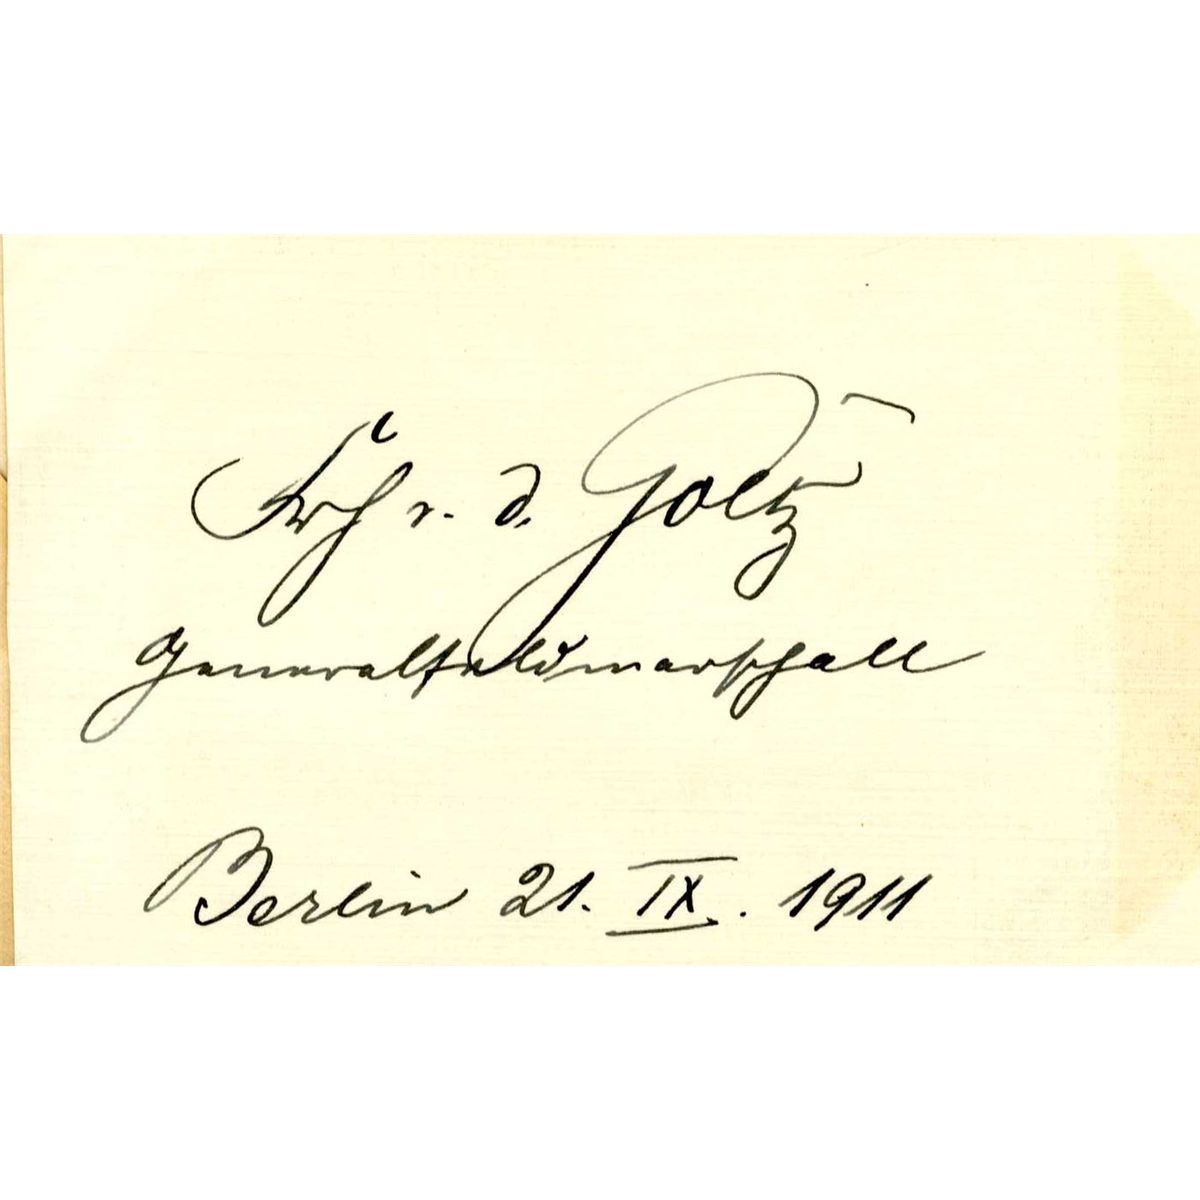 Frh v. d. Goltz
Generalfeldmarschall
Berlin 21. IX. 1911